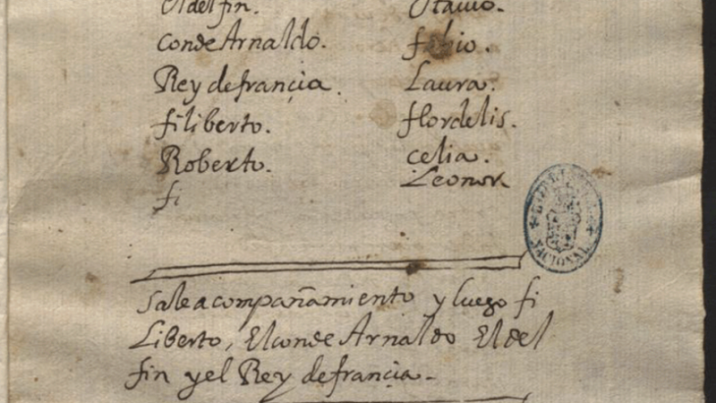 El delfin.
Conde Arnaldo.
Rey de françia.
filiberto.
Roberto.
fi
Otauio.
fabio.
Laura.
flordelis.
celia.
Leonor
NACIONAL
Sale acompañamiento y luego fi
Liberto, El conde Arnaldo El del
fin y el Rey de françia.